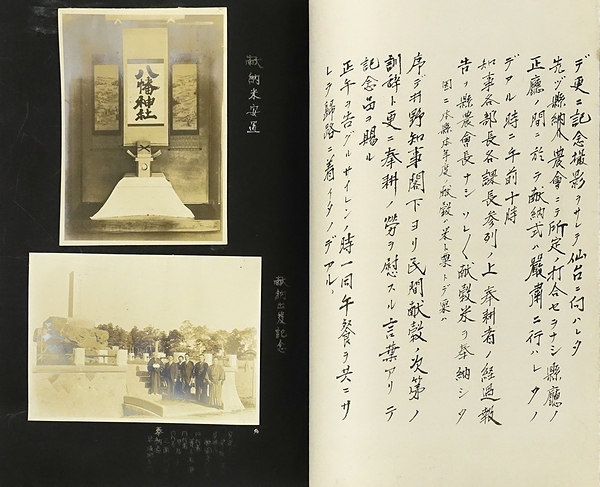 デ更ニ記念撮影ヲサレテ仙台ニ向ハレタ
先ヅ縣納米農會ニテ所定ノ打合セヲナシ縣廳ノ
正廳ノ間ニ於テ献納式ハ嚴肅ニ行ハレタノ
デアル時ニ午前十時
知事各部長各課長参列ノ上奉耕者ノ経過報
告ヲ縣農會長ナシソレ〱献穀米ヲ奉納シタ
因ニ本縣本年度ノ献穀ハ米ト粟トデ粟ハ
序デ井野知事閣下ヨリ民間献穀ノ次第ノ
訓辞ト更ニ奉耕ノ勞ヲ慰スル言葉アリテ
記念品ヲ賜ル
正午ヲ告グルサイレンノ時一同午餐ヲ共ニサ
レテ歸路ニ着イタノデアル、
献納米安置
八幡神社
献納出発記念